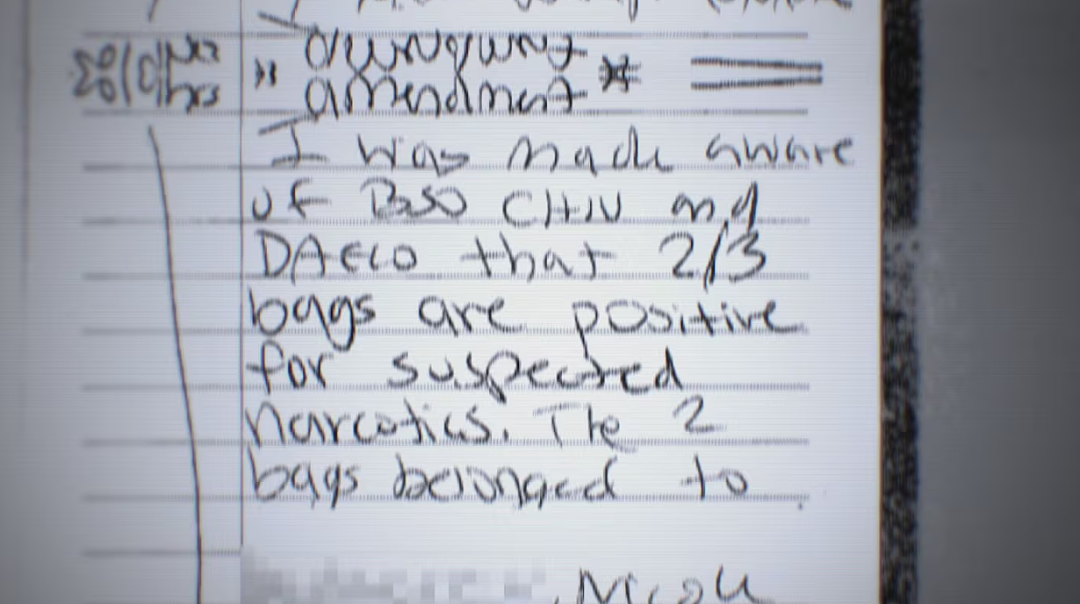 " amendment *
I was made aware
of BSO CHIU and
DAECO that 2/3
bags are positive
for suspected
narcotics. The 2
bags belonged to